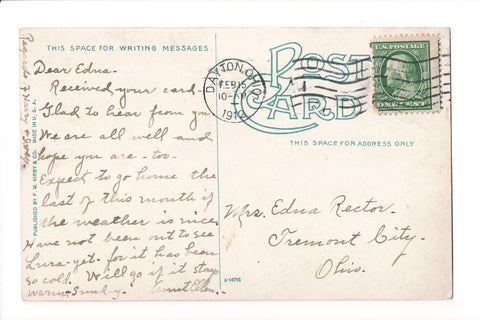 THIS SPACE FOR WRITING MESSAGES.
Dear Edna.
Received your card-
Glad to hear from you
We are all well and
hope you are - too-
Expect to go home the
last of this month if
the weather is nice
Have not been out to see
Lura - yet - for it has been
so cold. Will go if it stays
warm - Sunday - Aunt Ellen.
PUBLISHED BY F. M. KIRBY & CO. MADE IN U. S. A.
POST CARD
DAYTON, OHIO
FEB 15
10-
1912
U.S. POSTAGE
ONE CENT
THIS SPACE FOR ADDRESS ONLY.
Mrs. Edna Rector.
Tremont City.
Ohio.
A-14715